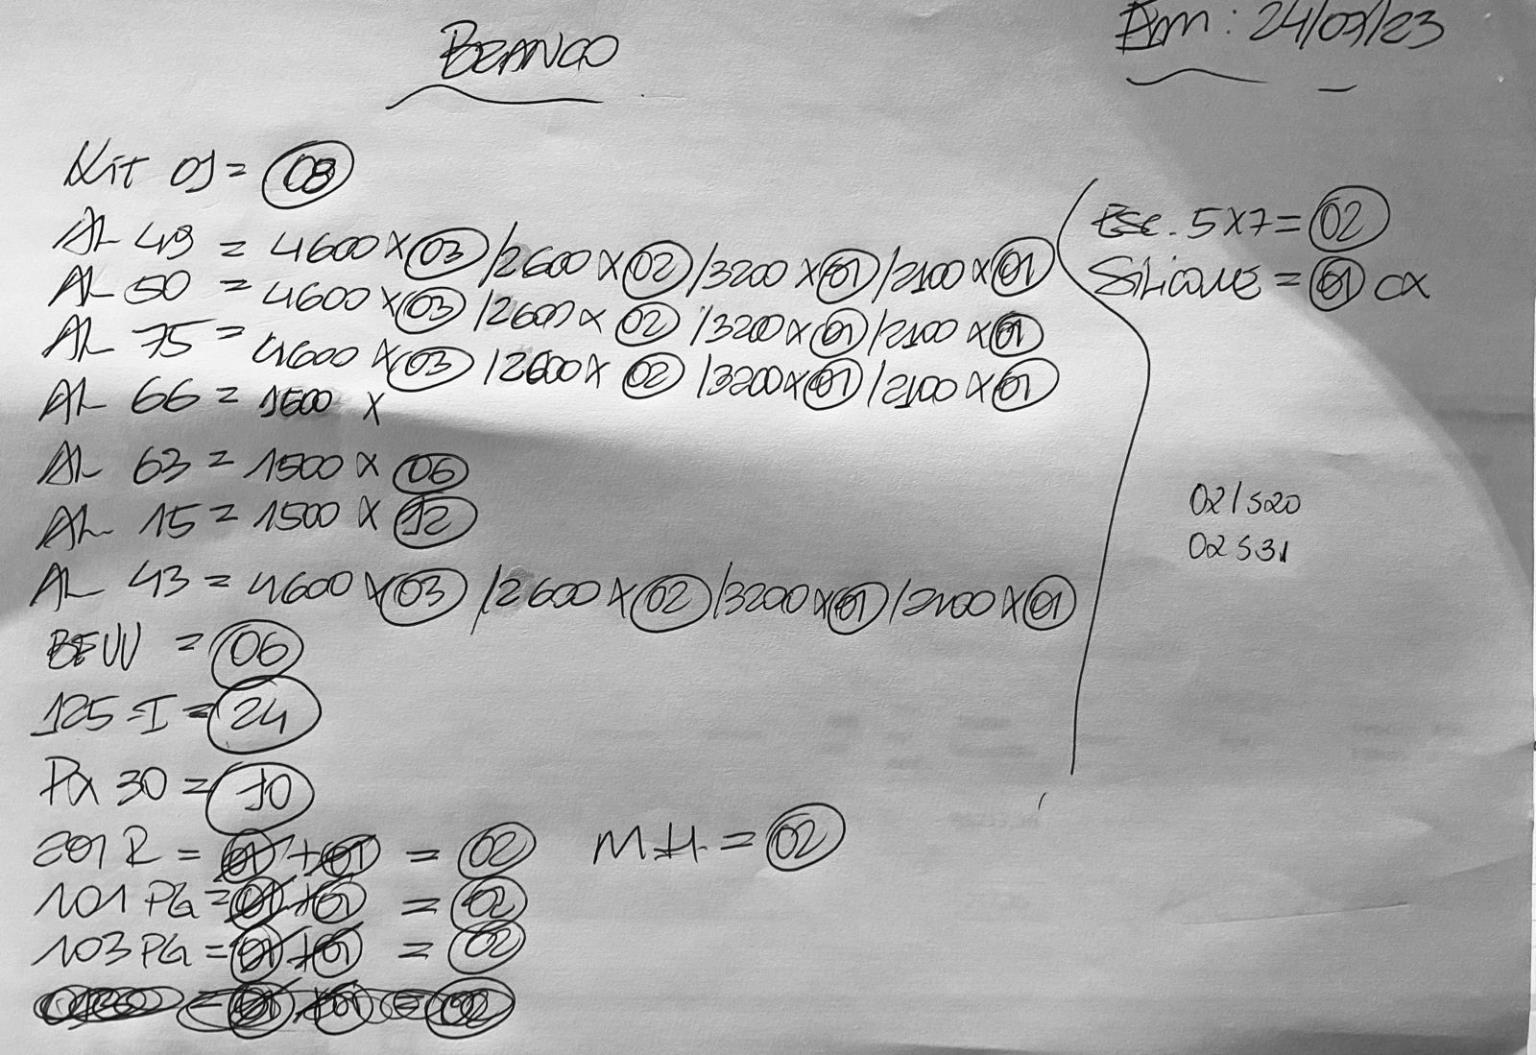 BRANCO
Em: 24/01/23
Kit 01 = 08
AL 49 = 4600 x 03 / 2600 x 02 / 3200 x 01 / 2100 x 01
AL 50 = 4600 x 03 / 2600 x 02 / 3200 x 01 / 2100 x 01
AL 75 = 4600 x 03 / 2600 x 02 / 3200 x 01 / 2100 x 01
AL 66 = 1500 x
AL 63 = 1500 x 06
AL 15 = 1500 x 12
AL 43 = 4600 x 03 / 2600 x 02 / 3200 x 01 / 2100 x 01
= 06
125-I = 24
PX 30 = 10
201 R = 01 + 01 = 02
MH = 02
101 PG = 01 + 01 = 02
103 PG = 01 + 01 = 02
Esc. 5X7 = 02
Silicone = 01 CX
02/520
02 531